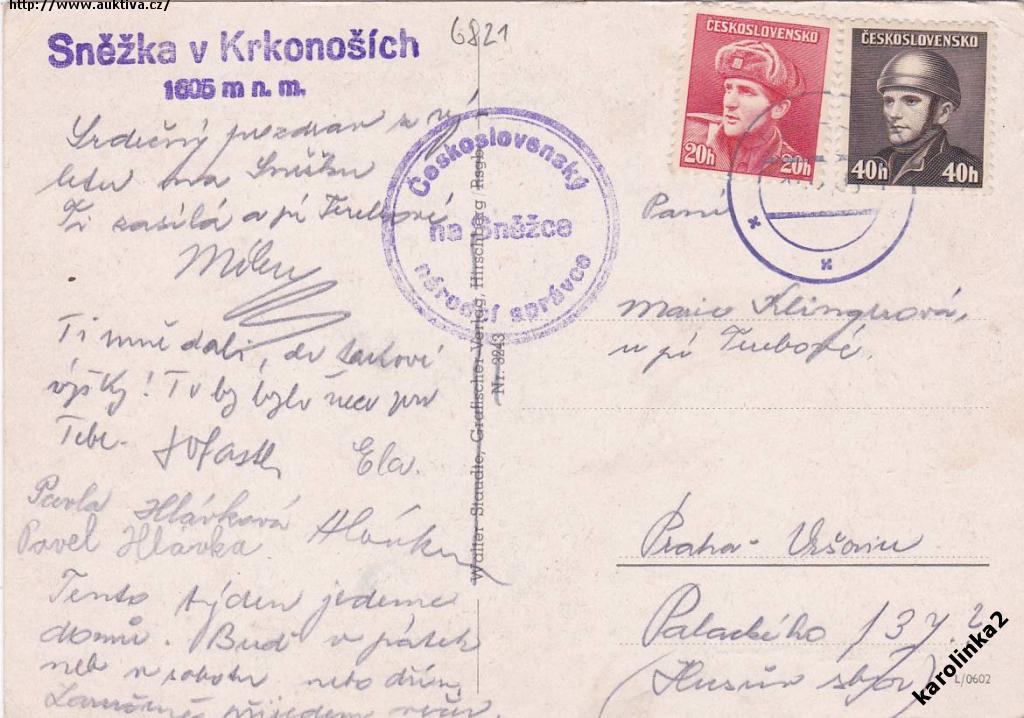 http://www.auktiva.cz/
Sněžka v Krkonoších
1605 m n. m.
6821
ČESKOSLOVENSKO
20h 20h
ČESKOSLOVENSKO
40h 40h
Československý
na Sněžce
národní správce
Srdečný pozdrav z vý
letu na Sněžku
Ti zasílá a pí Trubové
Ti mně dali, do takové
výšky! To by bylo něco pro
Tebe.
Ela.
Pavla Hlávková
Pavel Hlávka
Tento týden jedeme
domů. Buď v pátek
nebo v sobotu nebo dřív.
přijedem večer.
Walter Staudte, Grafischer Verlag, Hirschberg Rsgb.
Nr. 3243
Paní
Marie Klingerová,
u pí Trubové.
Praha - Vršovice
Palackého 137.2
(Husův sbor)
L/0602
karolinka2